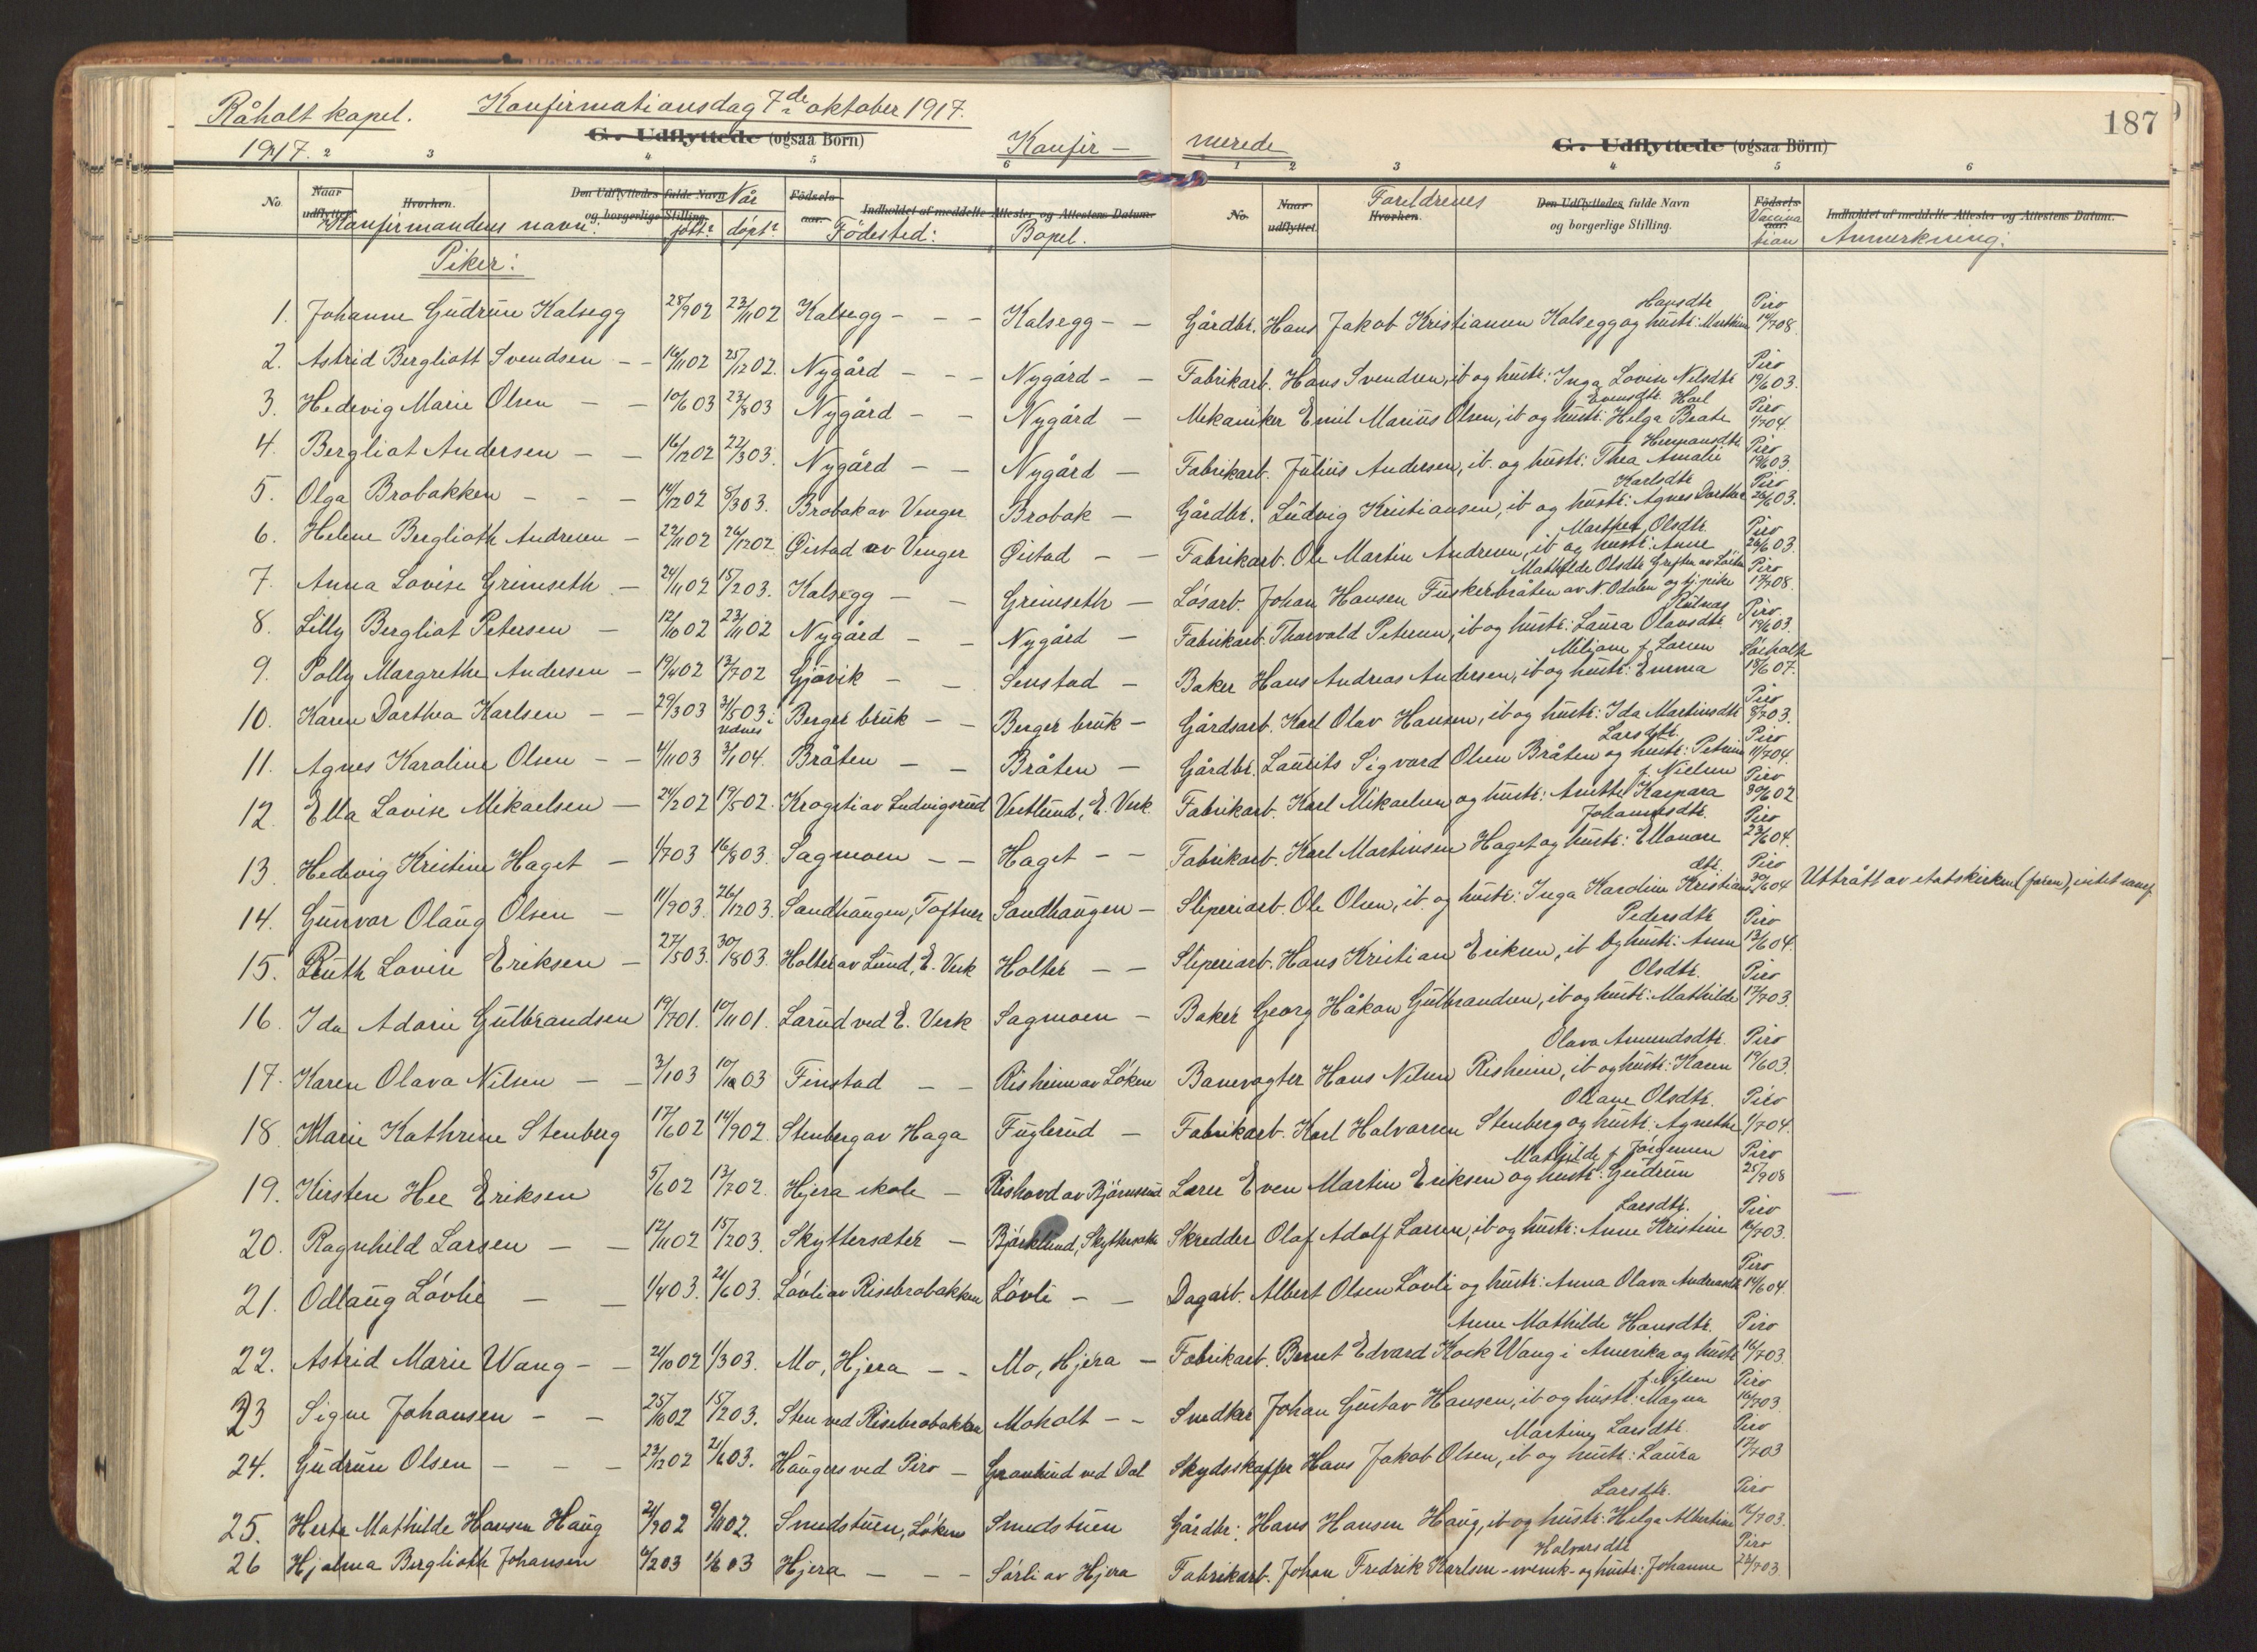 187
Råholt kapel. Konfirmationsdag 7de oktober 1917.
G. Udflyttede (ogsaa Börn) G. Udflyttede (ogsaa Börn)
1917. Konfir- merede
2 3 4 5 6 1 2 3 4 5 6
No. Naar udflyttet Hvorhen. Den Udflyttedes fulde Navn og borgerlige Stilling. Födselsaar. Indholdet af meddelte Attester og Attestens Datum. No. Naar udflyttet Hvorhen. Den Udflyttedes fulde Navn og borgerlige Stilling. Födselsaar. Indholdet af meddelte Attester og Attestens Datum.
Konfirmandens navn: Når født? døpt? Fødested: Bopel. Foreldrenes Vaccination Anmerkning:
Piker:
1. Johanne Gudrun Kalsegg 28/9 02 23/11 02 Kalsegg - - - Kalsegg - - Gårdbr. Hans Jakob Kristiansen Kalsegg og hustr: Marthine Hansdtr Piro 14/7 08.
2. Astrid Bergliott Svendsen - - 16/11 02 25/12 02. Nygård - - - Nygård - - Fabrikarb. Hans Svendsen, ib og hustr: Inga Lovise Nilsdtr Piro 19/6 03.
3. Hedevig Marie Olsen - - 10/6 03 23/8 03 Nygård - - Nygård - Mekaniker Emil Marius Olsen, ib og hustr: Helga Beate Evensdtr. Hoel Piro 1/7 04.
4. Bergliot Andersen - - 16/12 02 22/3 03. Nygård - - Nygård - Fabrikarb. Julius Andersen, ib. og hustr: Thea Amalie Hermansdtr Piro 19/6 03.
5. Olga Brobakken - - - 14/12 02 8/3 03. Brobak av Venger Brobak - Gårdbr. Ludvig Kristiansen, ib og hustr: Agnes Dorthea Karlsdtr Piro 26/6 03.
6. Helene Berglioth Andresen - 22/11 02 26/12 02. Øistad av Venger Øistad - - Fabrikarb. Ole Martin Andresen, ib og hustr: Anne Marthea Olsdtr. Piro 26/6 03.
7. Anna Lovise Grimseth - 24/11 02 15/2 03. Kalsegg - - Gremseth - Løsarb. Johan Hansen Fuskerbråten av N. Odalen og tj. pike Mathilde Olsdtr Piro 17/7 08.
8. Lilly Bergliot Petersen - 12/10 02 23/11 02 Nygård - Nygård - Fabrikarb. Thorvald Petersen, ib og hustr: Laura Olausdtr. Piro. 19/6 03.
9. Polly Margrethe Andersen - 19/4 02 13/7 02 Gjøvik - - Senstad - Baker Hans Andreas Andersen, ib og hustr: Emma Miljane f. Larsen 18/6 07.
10. Karen Dorthea Karlsen - - 29/3 03 31/5 03. Berger bruk - - Berger bruk - Gårdsarb. Karl Olav Hansen, ib og hustr: Ida Martinsdtr Piro 8/7 03.
11. Agnes Karoline Olsen - - 4/11 03 3/1 04. Bråten - - Bråten - Gårdbr. Laurits Sigvard Olsen Bråten og hustr: Petrine Larsdtr. Piro 11/7 04.
12. Ella Lovise Mikaelsen - 24/2 02 19/5 02. Krogsti av Ludvigsrud Vestlund, E. Verk. Fabrikarb. Karl Mikaelsen og hustr: Anette Kaspara f. Nielsen Piro 30/6 02
13. Hedevig Kristine Haget - 1/7 03 16/8 03. Sagmoen - - Haget - - Fabrikarb. Karl Martinsen Haget og hustr: Ellonore Johannesdtr. Piro 23/6 04.
14. Gunvor Olaug Olsen - 11/9 03. 26/12 03. Sandhaugen, Toftner Sandhaugen - Sliperiarb. Ole Olsen, ib. og hustr: Inga Karoline Kristiansdtr. Piro 30/6 04 Uttrått av statskirken (faren),
15. Ruth Lovise Eriksen - 27/5 03. 30/8 03. Holter av Lund, E. Verk Holter - - Sliperiarb. Hans Kristian Eriksen, ib og hustr: Anne Pedersdtr Piro 13/6 04.
16. Ida Adorie Gulbrandsen 19/7 01. 10/11 01. Larud ved E. Verk Sagmoen - Baker Georg Håkon Gulbrandsen, ib og hustr: Mathilde Olsdtr. Piro 17/7 03.
17. Karen Olava Nilsen - - 3/1 03 10/10 03 Finstad - - Risheim av Løken Banevogter Hans Nilsen Risheim, ib og hustr: Karen Olava Amundsdtr. Piro 19/6 03.
18. Marie Kathrine Stenberg 17/6 02 14/9 02. Stenberg av Haga Fuglerud - Fabrikarb. Karl Halvorsen Stenberg og hustr: Agnethe Oliane Olsdtr. Piro 1/7 04.
19. Kirsten Hee Eriksen 5/6 02 13/7 02. Hjera skole - Rishovd av Bjørnsrud Lærer Even Martin Eriksen og hustr: Gudrun Mathilde f. Jørgensen Piro 25/9 08
20. Ragnhild Larsen - - 12/11 02 15/2 03. Skyttersæter - Bjørklund, Skyttersæter Skredder Olaf Adolf Larsen, ib og hustr: Anne Kristine Larsdtr. Piro 10/7 03.
21. Odlaug Løvlie - - 1/4 03. 21/6 03. Løvli av Risebrobakken Løvli - - Dagarb. Albert Olsen Løvli og hustr: Anna Olava Andreasdtr Piro 14/6 04.
22. Astrid Marie Wang - - 21/10 02 1/3 03. Mo, Hjera - - Mo, Hjera - Fabrikarb. Bernt Edvard Kock Wang i Amerika og hustr Anne Mathilde Hansdtr. Piro 16/7 03.
23 Signe Johansen - - 25/10 02 15/2 03. Sten ved Risebrobakken Moholt - - Snedker Johan Gustav Hansen, ib og hustr: Magna f. Nilsen Piro 16/7 03.
24. Gudrun Olsen - - - 23/12 02 21/6 03. Haugers ved Piro - Granlund ved Dal Skydsskaffer Hans Jakob Olsen, ib og hustr: Laura Martine Larsdtr. Piro 17/7 03
25. Herta Mathilde Hansen Haug 21/9 02 9/11 02. Smedstuen, Løken Smedstuen Gårdbr: Hans Hansen Haug, ib og hustr: Helga Albertine Larsdtr. Piro 16/7 03.
26 Hjalma Bergliotte Johansen 6/2 03 1/6 03 Hjera - - - Sørli av Hjera Fabrikarb. Johan Fredrik Karlsen - svensk - og hustr: Johanne Halvorsdtr Piro 22/7 03.